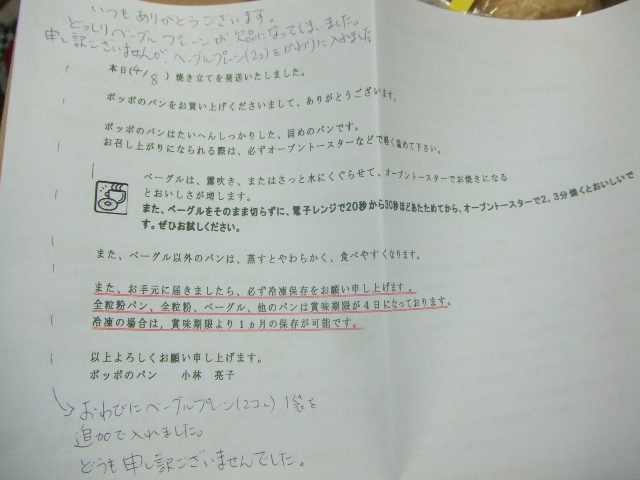 いつもありがとうございます。
どっしりベーグルプレーンが欠品になってしまいました。
申し訳ございませんが、ベーグルプレーン(2コ)をかわりに入れました
本日(4/8)焼き立てを発送いたしました。
ポッポのパンをお買い上げくださいまして、ありがとうございます。
ポッポのパンはたいへんしっかりした、固めのパンです。
お召し上がりになられる際は、必ずオーブントースターなどで軽く温めて下さい。
ベーグルは、霧吹き、またはさっと水にくぐらせて、オーブントースターでお焼きになる
とおいしさが増します。
また、ベーグルをそのまま切らずに、電子レンジで20秒から30秒ほどあたためてから、オーブントースターで2,3分焼くとおいしいで
す。ぜひお試しください。
また、ベーグル以外のパンは、蒸すとやわらかく、食べやすくなります。
また、お手元に届きましたら、必ず冷凍保存をお願い申し上げます。
全粒粉パン、全粒粉、ベーグル、他のパンは賞味期限が4日になっております。
冷凍の場合は，賞味期限より1ヵ月の保存が可能です。
以上よろしくお願い申し上げます。
ポッポのパン 小林 亮子
↳おわびにベーグルプレーン(2コ入) 1袋を
追加で入れました。
どうも申し訳ございませんでした。